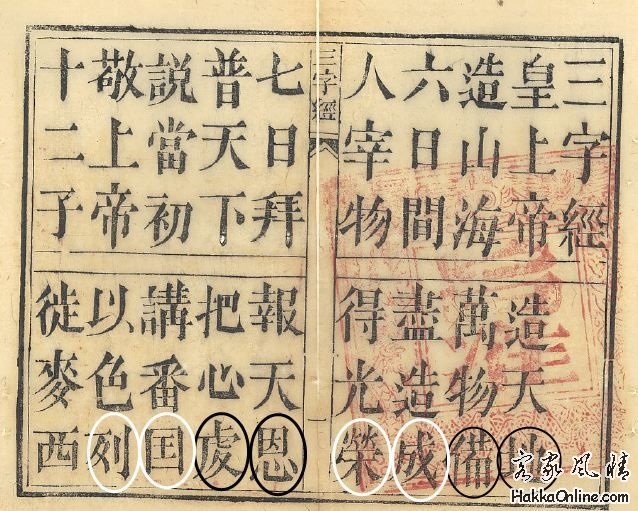 三字經
皇上帝 造天地
造山海 萬物備
六日間 盡造成
人宰物 得光榮
三字經 一
七日拜 報天恩
普天下 把心虔
説當初 講番囯
敬上帝 以色列
十二子 徙麥西
客家風情
HakkaOnline.com